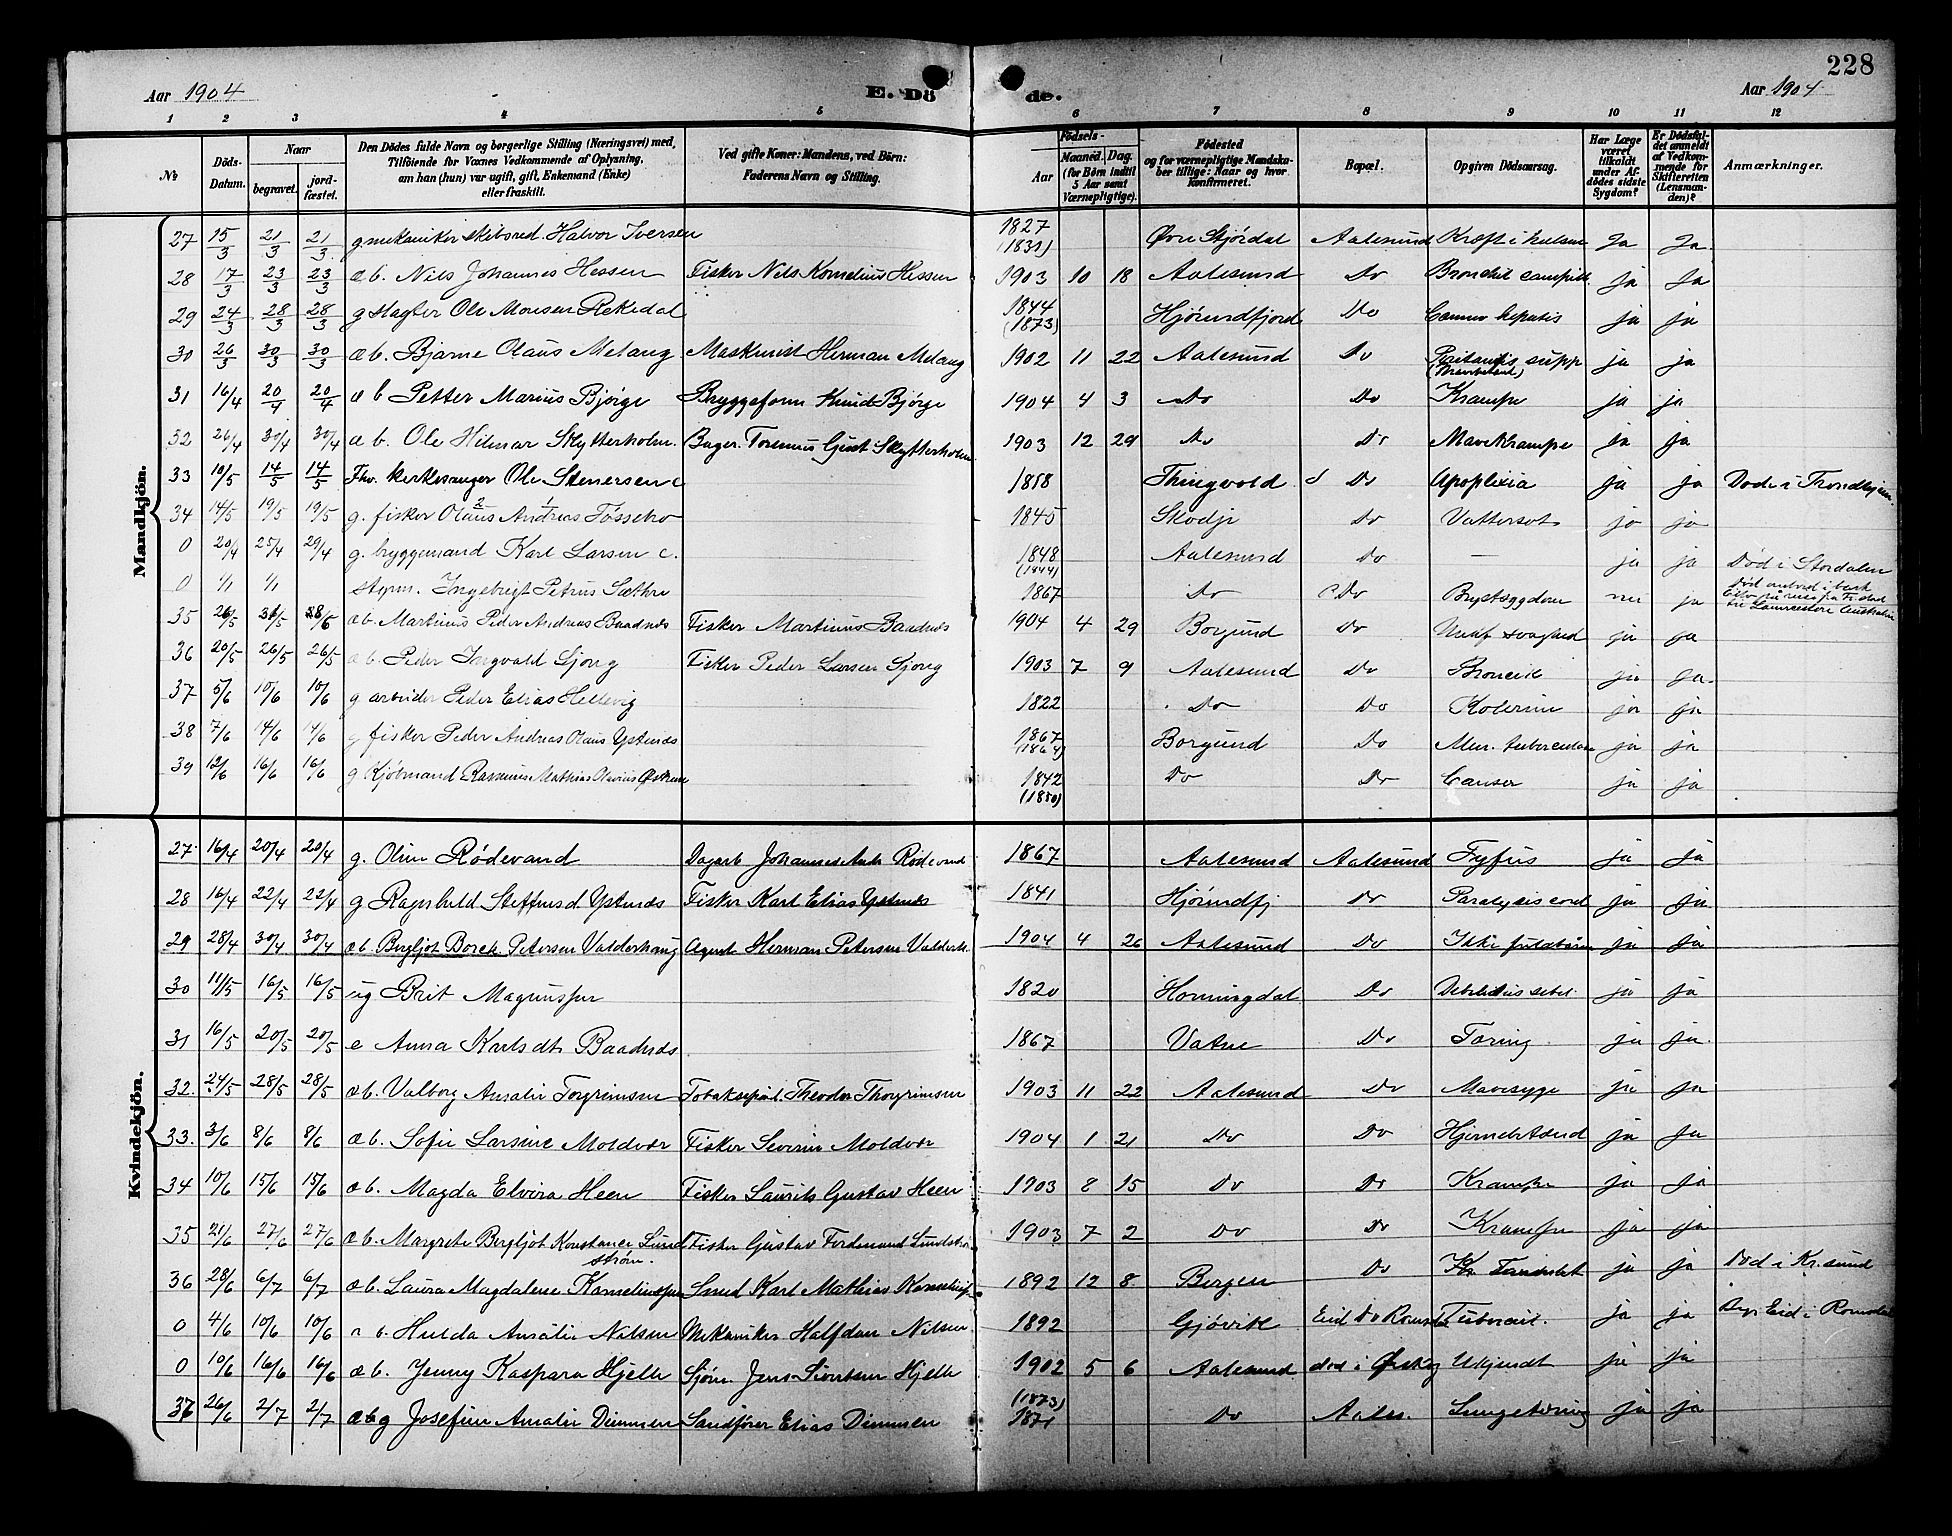 228
Aar 1904
E. Dö
de.
Aar 1904
1 2 3 4 5 6 7 8 9 10 11 12
№
Döds-
Datum.
Naar
begravet.
jord-
fæstet.
Den Dödes fulde Navn og borgerlige Stilling (Næringsvei) med,
Tilföiende for Voxnes Vedkommende af Oplysning,
om han (hun) var ugift, gift, Enkemand (Enke)
eller fraskilt.
Ved gifte Koner: Mandens, ved Börn:
Faderens Navn og Stilling.
Födsels-
Aar
Maaned. Dag.
(for Börn indtil
5 Aar samt
Værnepligtige).
Födested
og for værnepligtige Mandska-
ber tillige: Naar og hvor
konfirmeret.
Bopæl.
Opgiven Dödsaarsag.
Har Læge
været
tilkaldt
under Af-
dödes sidste
Sygdom?
Er Dödsfal-
det anmeldt
af Vedkom-
mende for
Skifteretten
(Lensman-
den)?
Anmærkninger.
Mandkjön.
27 15/3 21/3 21/3 g. mekaniker skibsred. Halvor Iversen 1827 (1831) Øvre Stjørdal Aalesund Kræft i Ja Ja
28 17/3 23/3 23/3 æb. Nils Johannes Hessen Fisker Nils Kornelius Hessen 1903 10 18 Aalesund Do ja Ja
29 24/3 28/3 28/3 g Slagter Ole Monsen Rekedal 1844 (1873) Hjørundfjord Do hepatis ja ja
30 26/3 30/3 30/3 æb. Bjarne Olaus Melang Maskinist Herman Melang 1902 11 22 Aalesund Do supp ja ja
31 16/4 20/4 20/4 æ b Petter Marius Bjørge Bryggeform Knud Bjørge 1904 4 3 Do Do Krampe ja ja
32 26/4 30/4 30/4 æ b. Ole Hilmar Skytterholm. Bager. Gust Skytterholm 1903 12 29 Do Do Mavekrampe ja ja
33 10/5 14/5 14/5 Fhv. kirkesanger Ole Stenersen c 1818 Thingvold Do Apoplexia ja ja Død i Trondhjem
34 14/5 19/5 19/5 g. fisker Olaus Andreas Fossebro 1845 Skodje Do Vattersot ja ja
0 20/4 25/4 29/4 g. bryggemand Karl Larsen c. 1848 (1844) Aalesund Do — ja ja Død i Stordalen
0 1/1 1/1 styrm. Ingebrigt Petrus Sæthre 1867 Do Do Brystsygdom nei ja Død ombord i bark
35 26/5 31/5 28/5 æb. Martinus Peder Andreas Baadnæs Fisker Martinus Baadnæs 1904 4 29 Borgund Do svaghed ja ja
36 20/5 26/5 26/5 æ b. Peder Ingvald Sjong Fisker Peder Larsen Sjong 1903 7 9 Aalesund Do ja ja
37 5/6 10/6 10/6 g arbeider Peder Elias Hellevig 1822 Do Do Kolerine ja ja
38 7/6 14/6 14/6 g fisker Peder Andreas Olaus Ystenæs 1867 (1864) Borgund Do ja ja
39 12/6 16/6 16/6 g Kjøbmand Rasmus Mathias Olavius 1842 (1850) Do Do Canser ja ja
Kvindekjön.
27 16/4 20/4 20/4 g. Oline Rødevand Dagarb Johannes Rødevand 1867 Aalesund Aalesund Tyfus ja ja
28 16/4 22/4 22/4 g Ragnhild Steffensd Ystenæs Fisker Karl Elias Ystenæs 1841 Hjørundfj Do Paralysis cord ja ja
29 28/4 30/4 30/4 æb. Bergljot Borch Petersen Valderhaug Agent Herman Petersen 1904 4 26 Aalesund Do Ikke fuldbaaren ja ja
30 11/5 16/5 16/5 ug Brit Magnusser 1820 Horningdal Do ja ja
31 16/5 20/5 20/5 e Anna Karlsdt Baadnæs 1867 Vatne Do Tæring ja ja
32. 24/5 28/5 28/5 æb. Valborg Amalie Torgrimsen Theodor Thorgrimsen 1903 11 22 Aalesund Do Mavesyge ja ja
33. 3/6 8/6 8/6 æb. Sofie Larsine Moldvær Fisker Severin Moldvær 1904 1 21 Do Do ja ja
34 10/6 15/6 15/6 æb. Magda Elvira Heen Fisker Laurits Gustav Heen 1903 8 15 Do Do Krampe ja ja
35 21/6 27/6 27/6 æb. Margrete Bergljot Konstance Lund Fisker Gustav Ferdinand Lundstrøm 1903 7 2 Do Do Krampe ja ja
strøm.
36 28/6 6/7 6/7 æb. Laura Magdalene Korneliussen Smed Karl Mathias 1892 12 8 Bergen Do ja ja Død i Kr.sund
0 4/6 10/6 10/6 æ b. Hulda Amalie Nilsen Mekaniker Halfdan Nilsen 1892 Gjøvik Eid Tuberail. ja ja Eid i Romsdal
0 10/6 16/6 16/6 æb. Jenny Kaspara Hjelle Sjøm. Jens Hjelle 1902 5 6 Aalesund død i Ørskog Ukjendt ja ja
37 26/6 2/7 2/7 g Josefine Amalie Dimmen Sandfører Elias Dimmen (1873) 1871 Do Aales. Lungetæring ja ja